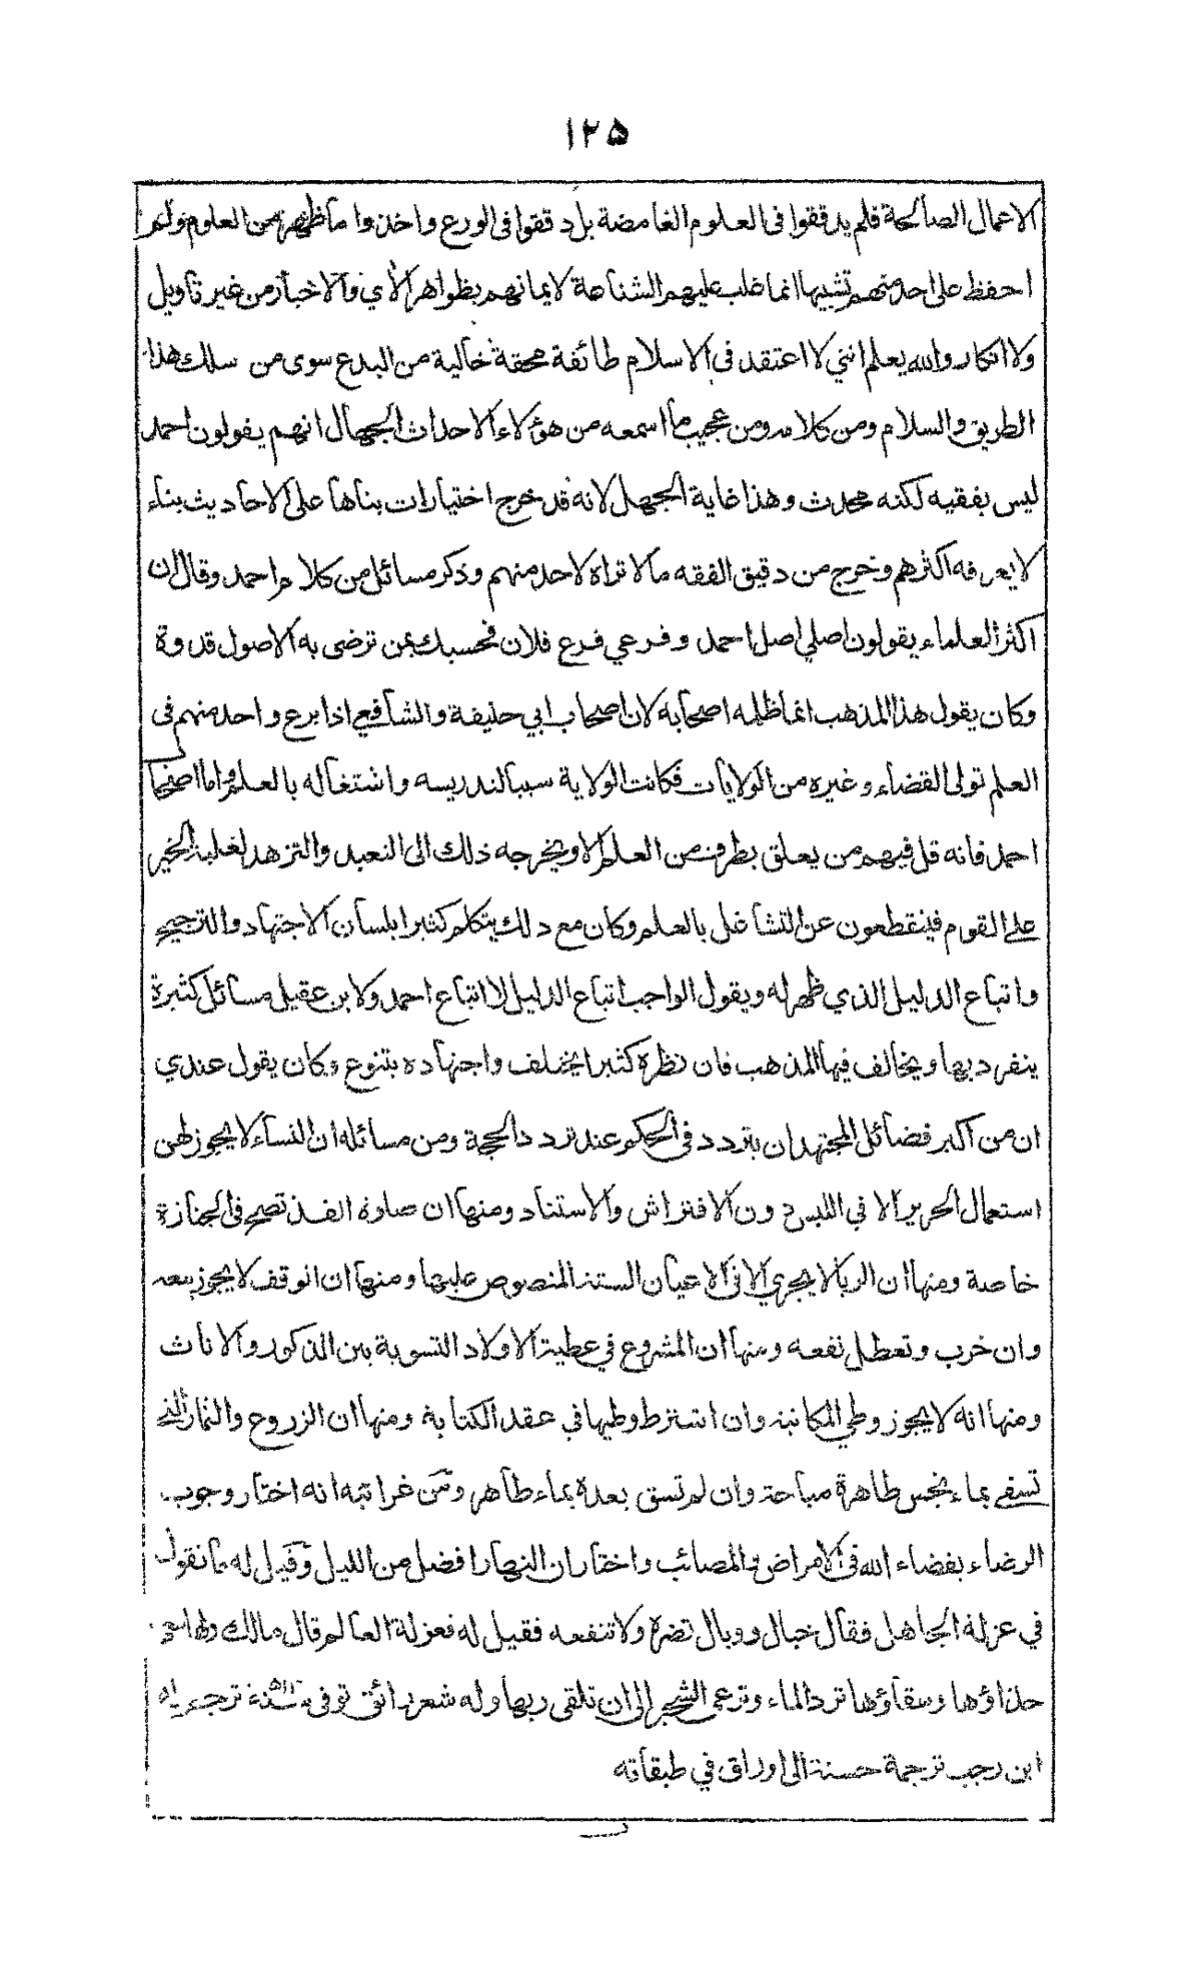 ۱۲۵
الاعمال الصالحة فلم يدققوا فى العلوم الغامضة بل دققوا فى الورع واخذوا ما ظهر من العلوم ولم
احفظ على احد منهم تشبيها انما غلب عليهم الشناعة لايمانهم بظواهر الآي والاخبار من غير تاويل
ولا انكار والله يعلم انني لا اعتقد فى الاسلام طائفة محقة خالية من البدع سوى من سلك هذا
الطريق والسلام ومن كلامه ومن عجيب ما اسمعه من هؤلاء الاحداث الجهال انهم يقولون احمد
ليس بفقيه لكنه محدث وهذا غاية الجهل لانه قد خرج اختيارات بناها على الاحاديث بناء
لا يعرفه اكثرهم وخرج من دقيق الفقه ما لا تراه لاحد منهم وذكر مسائل من كلام احمد وقال ان
اكثر العلماء يقولون اصلي اصل احمد وفرعي فرع فلان فحسبك بمن ترضى به الاصول قدوة
وكان يقول هذا المذهب انما ظلمه اصحابه لان اصحاب ابي حنيفة والشافعي اذا برع واحد منهم فى
العلم تولى القضاء وغيره من الولايات فكانت الولاية سببا لتدريسه واشتغاله بالعلم واما اصحاب
احمد فانه قل فيهم من يعلق بطرف من العلم الا ويخرجه ذلك الى التعبد والتزهد لغلبة الخير
على القوم فينقطعون عن التشاغل بالعلم وكان مع ذلك يتكلم كثيرا بلسان الاجتهاد والترجيح
واتباع الدليل الذي ظهر له ويقول الواجب اتباع الدليل لا اتباع احمد ولابن عقيل مسائل كثيرة
ينفرد بها ويخالف فيها المذهب فان نظره كثيرا يختلف واجتهاده يتنوع وكان يقول عندي
ان من اكبر فضائل المجتهد ان يتردد فى الحكم عند تردد الحجة ومن مسائله ان النساء لا يجوز لهن
استعمال الحرير الا في اللبس دون الافتراش والاستناد ومنها ان صلوة الفذ تصح فى الجنازة
خاصة ومنها ان الربا لا يجري الا فى الاعيان الستة المنصوص عليها ومنها ان الوقف لا يجوز بيعه
وان خرب وتعطل نفعه ومنها ان المشروع في عطية الاولاد التسوية بين الذكور والاناث
ومنها انه لا يجوز وطي المكاتبة وان اشترط وطيها في عقد الكتابة ومنها ان الزروع والثمار التي
تسقى بماء نجس طاهرة مباحة وان لم تسق بعده بماء طاهر ومن غرائبه انه اختار وجوب
الرضاء بقضاء الله فى الامراض والمصائب واختار ان النهار افضل من الليل وقيل له ما تقول
في عزلة الجاهل فقال خبال ووبال تضره ولا تنفعه فقيل له فعزلة العالم قال مالك ولها معها
حذاؤها وسقاؤها ترد الماء وترعى الشجر الى ان تلقى ربها وله شعر رائق توفى ترجم له
ابن رجب ترجمة حسنة الى اوراق في طبقاته